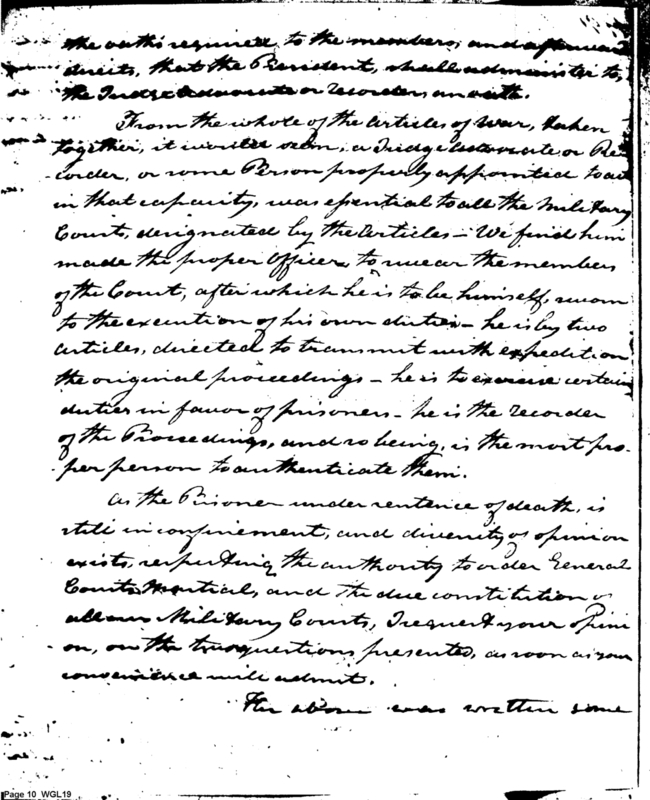 the oaths required, to the members, and afterward
directs, that the President, shall administer to,
the Judge Advocate or recorders an oath.
From the whole of the articles of war, taken
together, it would seem, a Judge Advocate or Re-
corder, or some Person properly appointed to act
in that capacity, was essential to all the Military
Courts, designated by the articles – We find him
made the proper officer, to swear the members
of the Court, after which he is to be himself, sworn
to the execution of his own duties – he is by two
articles, directed to transmit with expedition
the original proceedings – he is to exercise certain
duties in favor of prisoners – he is the recorder
of the Proceedings, and so being, is the most pro-
per person to authenticate them.
As the Prisoner under sentence of death, is
still in confinement, and diversity of opinion
exists, respecting the authority to order General
Courts Martial, and the due constitution of
all our Military Courts, I request your opini
on, on the two questions presented, as soon as your
convenience will admit.
The above was written some
Page 10 WGL19